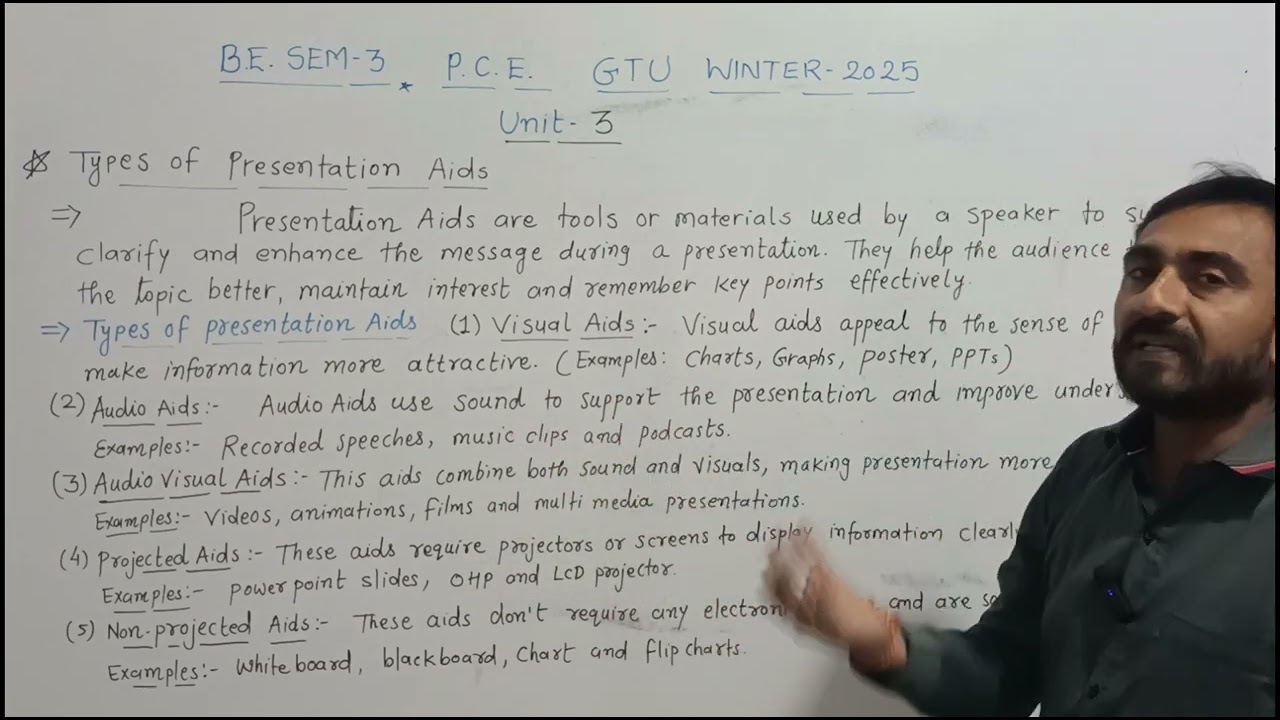 B.E. SEM-3 P.C.E. GTU WINTER-2025
Unit-3
☆ Types of Presentation Aids
⇒ Presentation Aids are tools or materials used by a speaker to
clarify and enhance the message during a presentation. They help the audience
the topic better, maintain interest and remember key points effectively.
⇒ Types of presentation Aids (1) Visual Aids:- Visual aids appeal to the sense of
make information more attractive. (Examples: Charts, Graphs, poster, PPTs)
(2) Audio Aids:- Audio Aids use sound to support the presentation and improve
Examples:- Recorded speeches, music clips and podcasts.
(3) Audio Visual Aids:- This aids combine both sound and visuals, making presentation more
Examples:- Videos, animations, films and multi media presentations.
(4) Projected Aids:- These aids require projectors or screens to display information
Examples:- Power point slides, OHP and LCD projector.
(5) Non-projected Aids:- These aids don't require any and are
Examples:- White board, blackboard, Chart and flip charts.